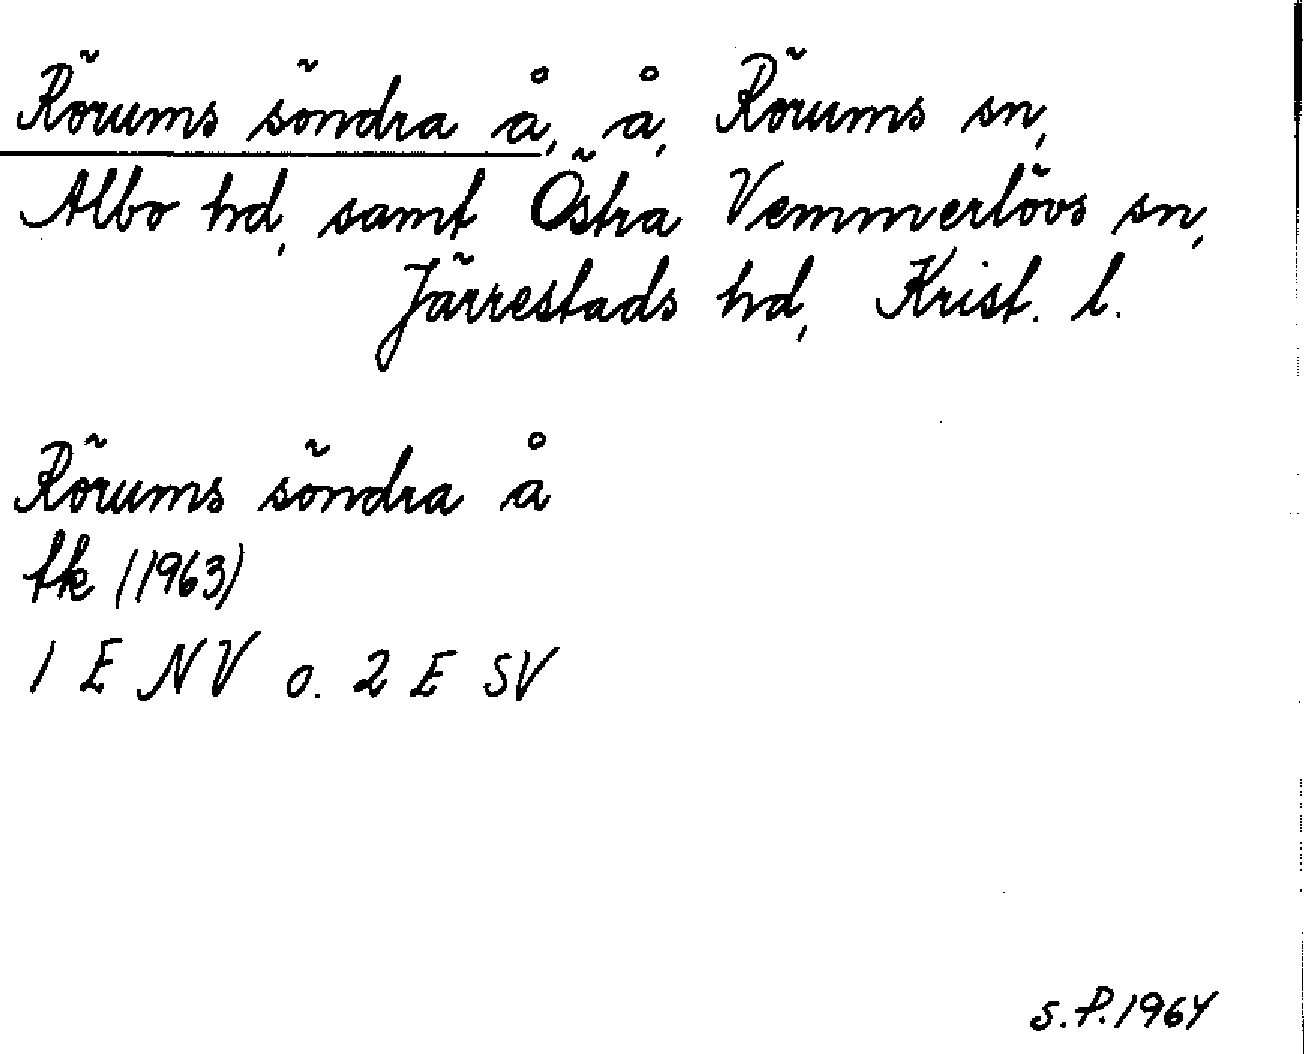 Rörums södra å, å, Rörums sn,
Albo hd, samt Östra Vemmerlövs sn,
Järrestads hd, Krist. l.
Rörums södra å
fk (1963)
1 E NV o. 2 E SV
S.P. 1964